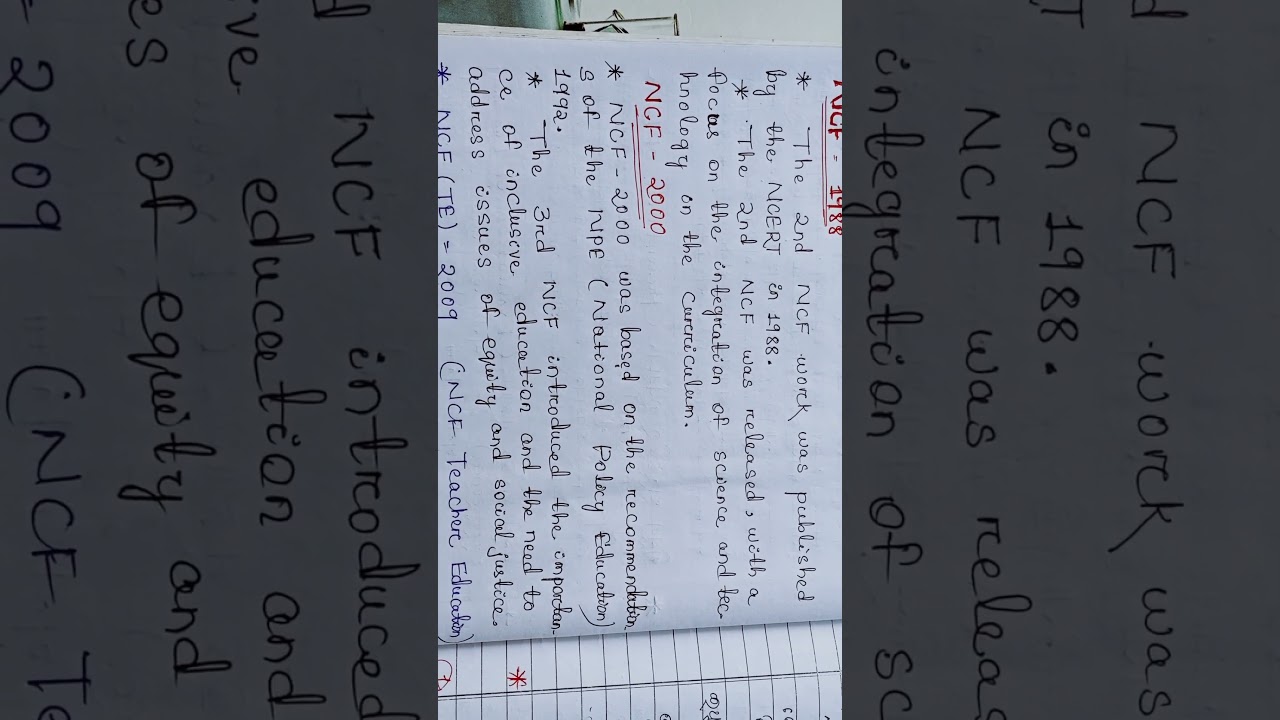 NCF - 1988
* The 2nd NCF work was published
by the NCERT in 1988.
* The 2nd NCF was released, with a
focus on the integration of science and tec
hnology on the curriculum.
NCF - 2000
* NCF - 2000 was based on the recommendation
s of the NPE (National Policy Education)
1992.
* The 3rd NCF introduced the importan
ce of inclusive education and the need to
address issues of equity and social justice.
* NCF (TE) = 2009 (NCF Teacher Education)